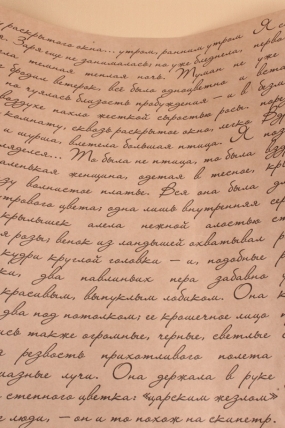 раскрытого окна... утром, ранним утром Я с
. Заря еще не занималась; но уже бледнела, перво
ла темная теплая ночь. Туман не уже
бродил ветерок, все было одноцветно и вста
но чуялась близость пробуждения — и в безмо
воздухе пахло жесткой сыростью росы. пор
комнату, сквозь раскрытое окно, легко вд
и шурша, влетела большая птица. Я поз
ляделся... То была не птица, то была
аленькая женщина, одетая в тесное, кры
зу волнистое платье. Вся она была
трового цвета; одна лишь внутренняя сер
крылышек алела нежной алостью ст
я розы; венок из ландышей охватывал р
кудри круглой головки — и, подобные
ки, два павлиньих пера забавно
красивым, выпуклым лобиком. Она
два под потолком; ее крошечное лицо
ась также огромные, черные, светлые
я резвость прихотливого полета
иазные лучи. Она держала в руке
степного цветка: «царским жезлом»
е люди, — он и то похож на скипетр.